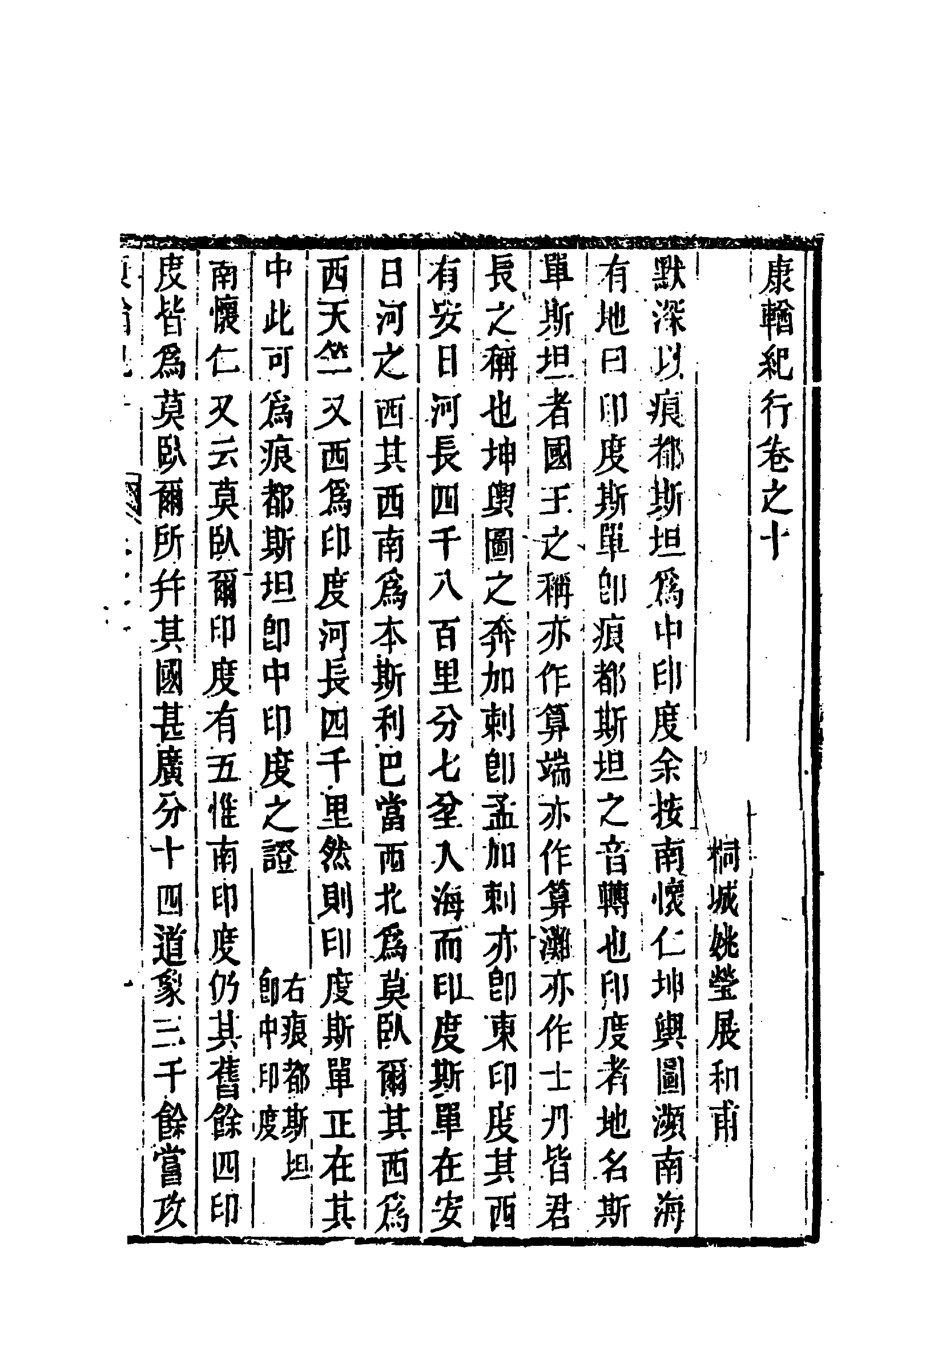 康輶紀行卷之十
桐城姚瑩展和甫
默深以痕都斯坦爲中印度余按南懷仁坤輿圖瀕南海
有地曰印度斯單卽痕都斯坦之音轉也印度者地名斯
單斯坦者國王之稱亦作算端亦作算灘亦作士丹皆君
長之稱也坤輿圖之奔加剌卽孟加剌亦卽東印度其西
有安日河長四千八百里分七坌入海而印度斯單在安
日河之西其西南爲本斯利巴當西北爲莫臥爾其西爲
西天竺又西爲印度河長四千里然則印度斯單正在其
中此可爲痕都斯坦卽中印度之證
右痕都斯坦
卽中印度
南懷仁又云莫臥爾印度有五惟南印度仍其舊餘四印
度皆爲莫臥爾所幷其國甚廣分十四道象三千餘嘗攻